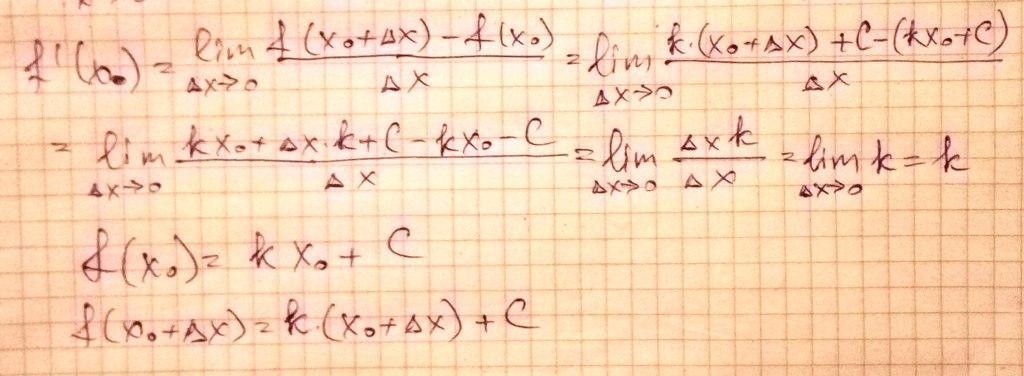 f'(x₀) = lim_{Δx→0} \frac{f(x₀+Δx) - f(x₀)}{Δx} = lim_{Δx→0} \frac{k·(x₀+Δx) + C - (kx₀+C)}{Δx}
= lim_{Δx→0} \frac{kx₀ + Δx·k + C - kx₀ - C}{Δx} = lim_{Δx→0} \frac{Δx k}{Δx} = lim_{Δx→0} k = k
f(x₀) = k x₀ + C
f(x₀+Δx) = k·(x₀+Δx) + C